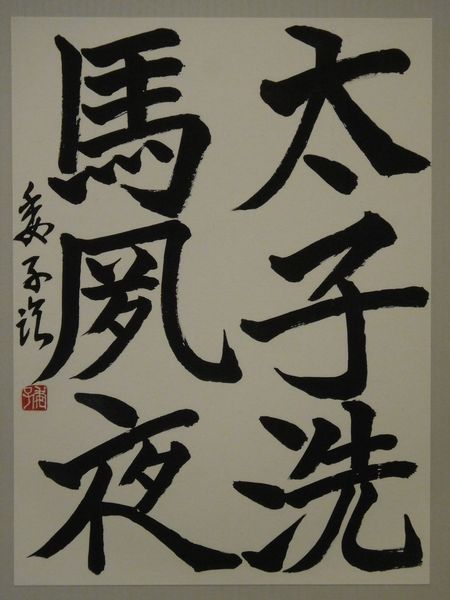 太子洗
馬夙夜